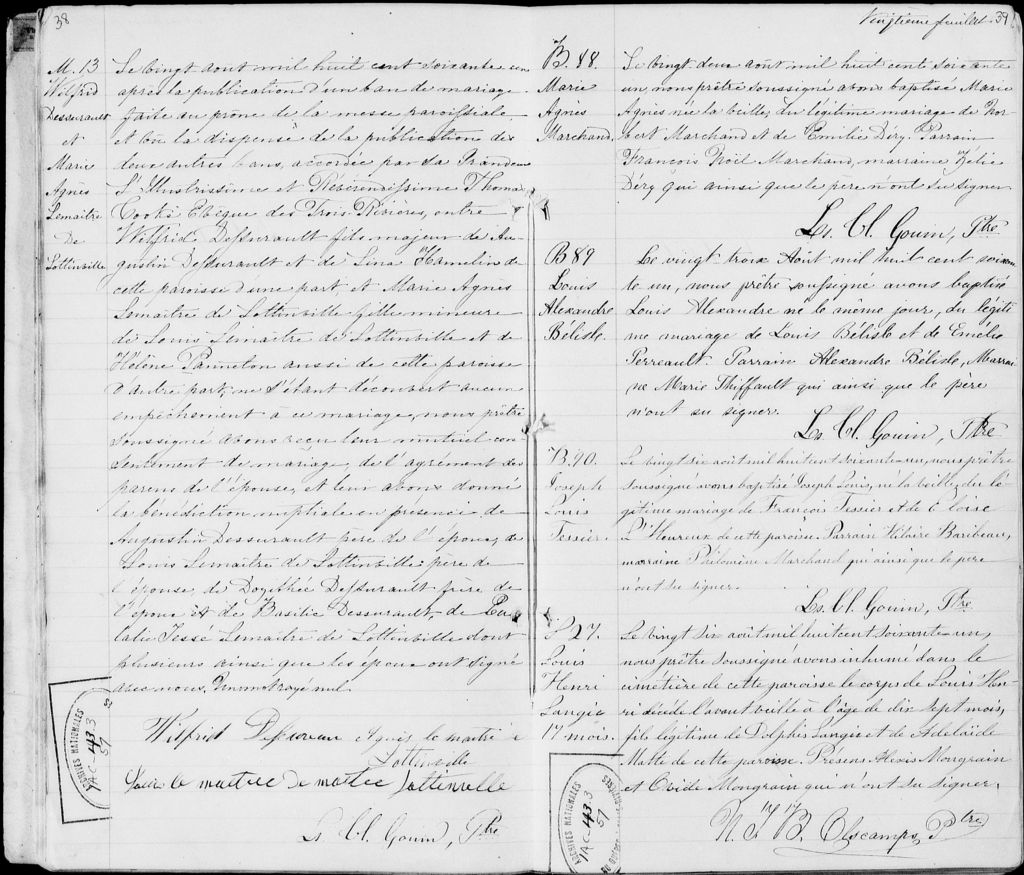 38
M. 13
Wilfrid
Dessurault
et
Marie
Agnès
Lemaitre
De
Lottinville
Le vingt aout mil huit cent soixante un
après la publication d'un ban de mariage
faite au prône de la messe paroissiale
et vu la dispense de la publication des
deux autres bans, accordée par Sa Grandeur
L'Illustrissime et Révérendissime Thomas
Cooke Evêque des Trois Rivières, entre
Wilfrid Dessurault fils majeur de Au-
gustin Dessurault et de Lina Hamelin de
cette paroisse d'une part, et Marie Agnès
Lemaitre de Lottinville fille mineure
de Louis Lemaitre de Lottinville et de
Hélène Panneton aussi de cette paroisse
d'autre part, ne s'étant découvert aucun
empêchement à ce mariage, nous prêtre
soussigné avons reçu leur mutuel con-
sentement de mariage, de l'agrément des
parens de l'épouse, et leur avons donné
la bénédiction nuptiale en présence de
Augustin Dessurault père de l'époux, de
Louis Lemaitre de Lottinville père de
l'épouse, de Dosithée Dessurault frère de
l'époux et de Basilie Dessurault, de
Jessé Lemaitre de Lottinville dont
plusieurs ainsi que les époux ont signé
avec nous. Un mot rayé nul.
Wilfrid Dessureau Agnès le maitre
Lottinville
le maitre De Lottinville
Ls. Cl. Gouin, Ptre
ARCHIVES NATIONALES
Vingtième feuillet 39
B. 88
Marie
Agnès
Marchand.
Le vingt deux août mil huit cent soixante
un, nous prêtre soussigné avons baptisé Marie
Agnès née la veille, du légitime mariage de Nor-
bert Marchand et de Emilie Déry. Parrain
François Noël Marchand, marraine Zélie
Déry qui ainsi que le père n'ont su signer
Ls. Cl. Gouin, Ptre
B 89
Louis
Alexandre
Bélisle.
Le vingt trois Aout mil huit cent soixan
te un, nous prêtre soussigné avons baptisé
Louis Alexandre né le même jour, du légiti
me mariage de Louis Bélisle et de Emélie
Perreault. Parrain Alexandre Bélisle, Marrai
ne Marie Thiffault qui ainsi que le père
n'ont su signer.
Ls. Cl. Gouin, Ptre
B. 90.
Joseph
Louis
Tessier.
Le vingt six août mil huit cent soixante un, nous prêtre
soussigné avons baptisé Joseph Louis, né la veille, du lé-
gitime mariage de François Tessier et de Eloise
L'Heureux de cette paroisse. Parrain Hilaire Baribeau,
marraine Philomène Marchand qui ainsi que le pere
n'ont su signer.
Ls. Cl. Gouin, Ptre
S 27.
Louis
Henri
Langis
17 mois.
Le vingt six août mil huit cent soixante un,
nous prêtre soussigné avons inhumé dans le
cimetière de cette paroisse le corps de Louis Hen-
ri décédé l'avant veille à l'âge de dix sept mois,
fils légitime de Dolphis Langis et de Adélaïde
Matte de cette paroisse. Présens Alexis Mongrain
et Ovide Mongrain qui n'ont su signer.
Olscamps, Ptre
ARCHIVES NATIONALES